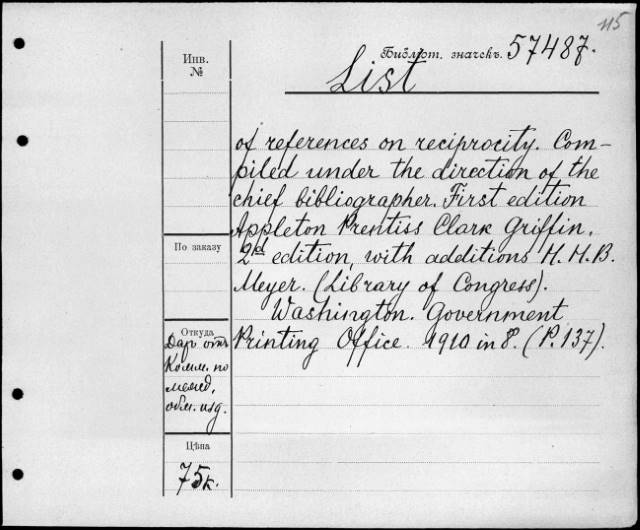 115
Библіот. значекъ. 57487.
Инв.
№
List
of references on reciprocity. Com-
piled under the direction of the
chief bibliographer. First edition
Appleton Prentiss Clark Griffin.
2d edition, with additions H. H. B.
Meyer. (Library of Congress).
Washington. Government
Printing Office. 1910 in 8. (P. 137).
По заказу
Откуда
Даръ отъ
Комм. по
межд.
обм. изд.
Цѣна
75к.